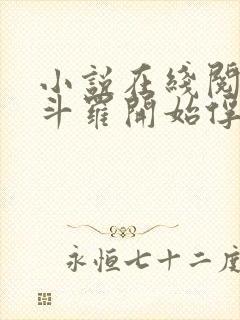 小説在綫閱
斗羅開始俘
永恒七十二度